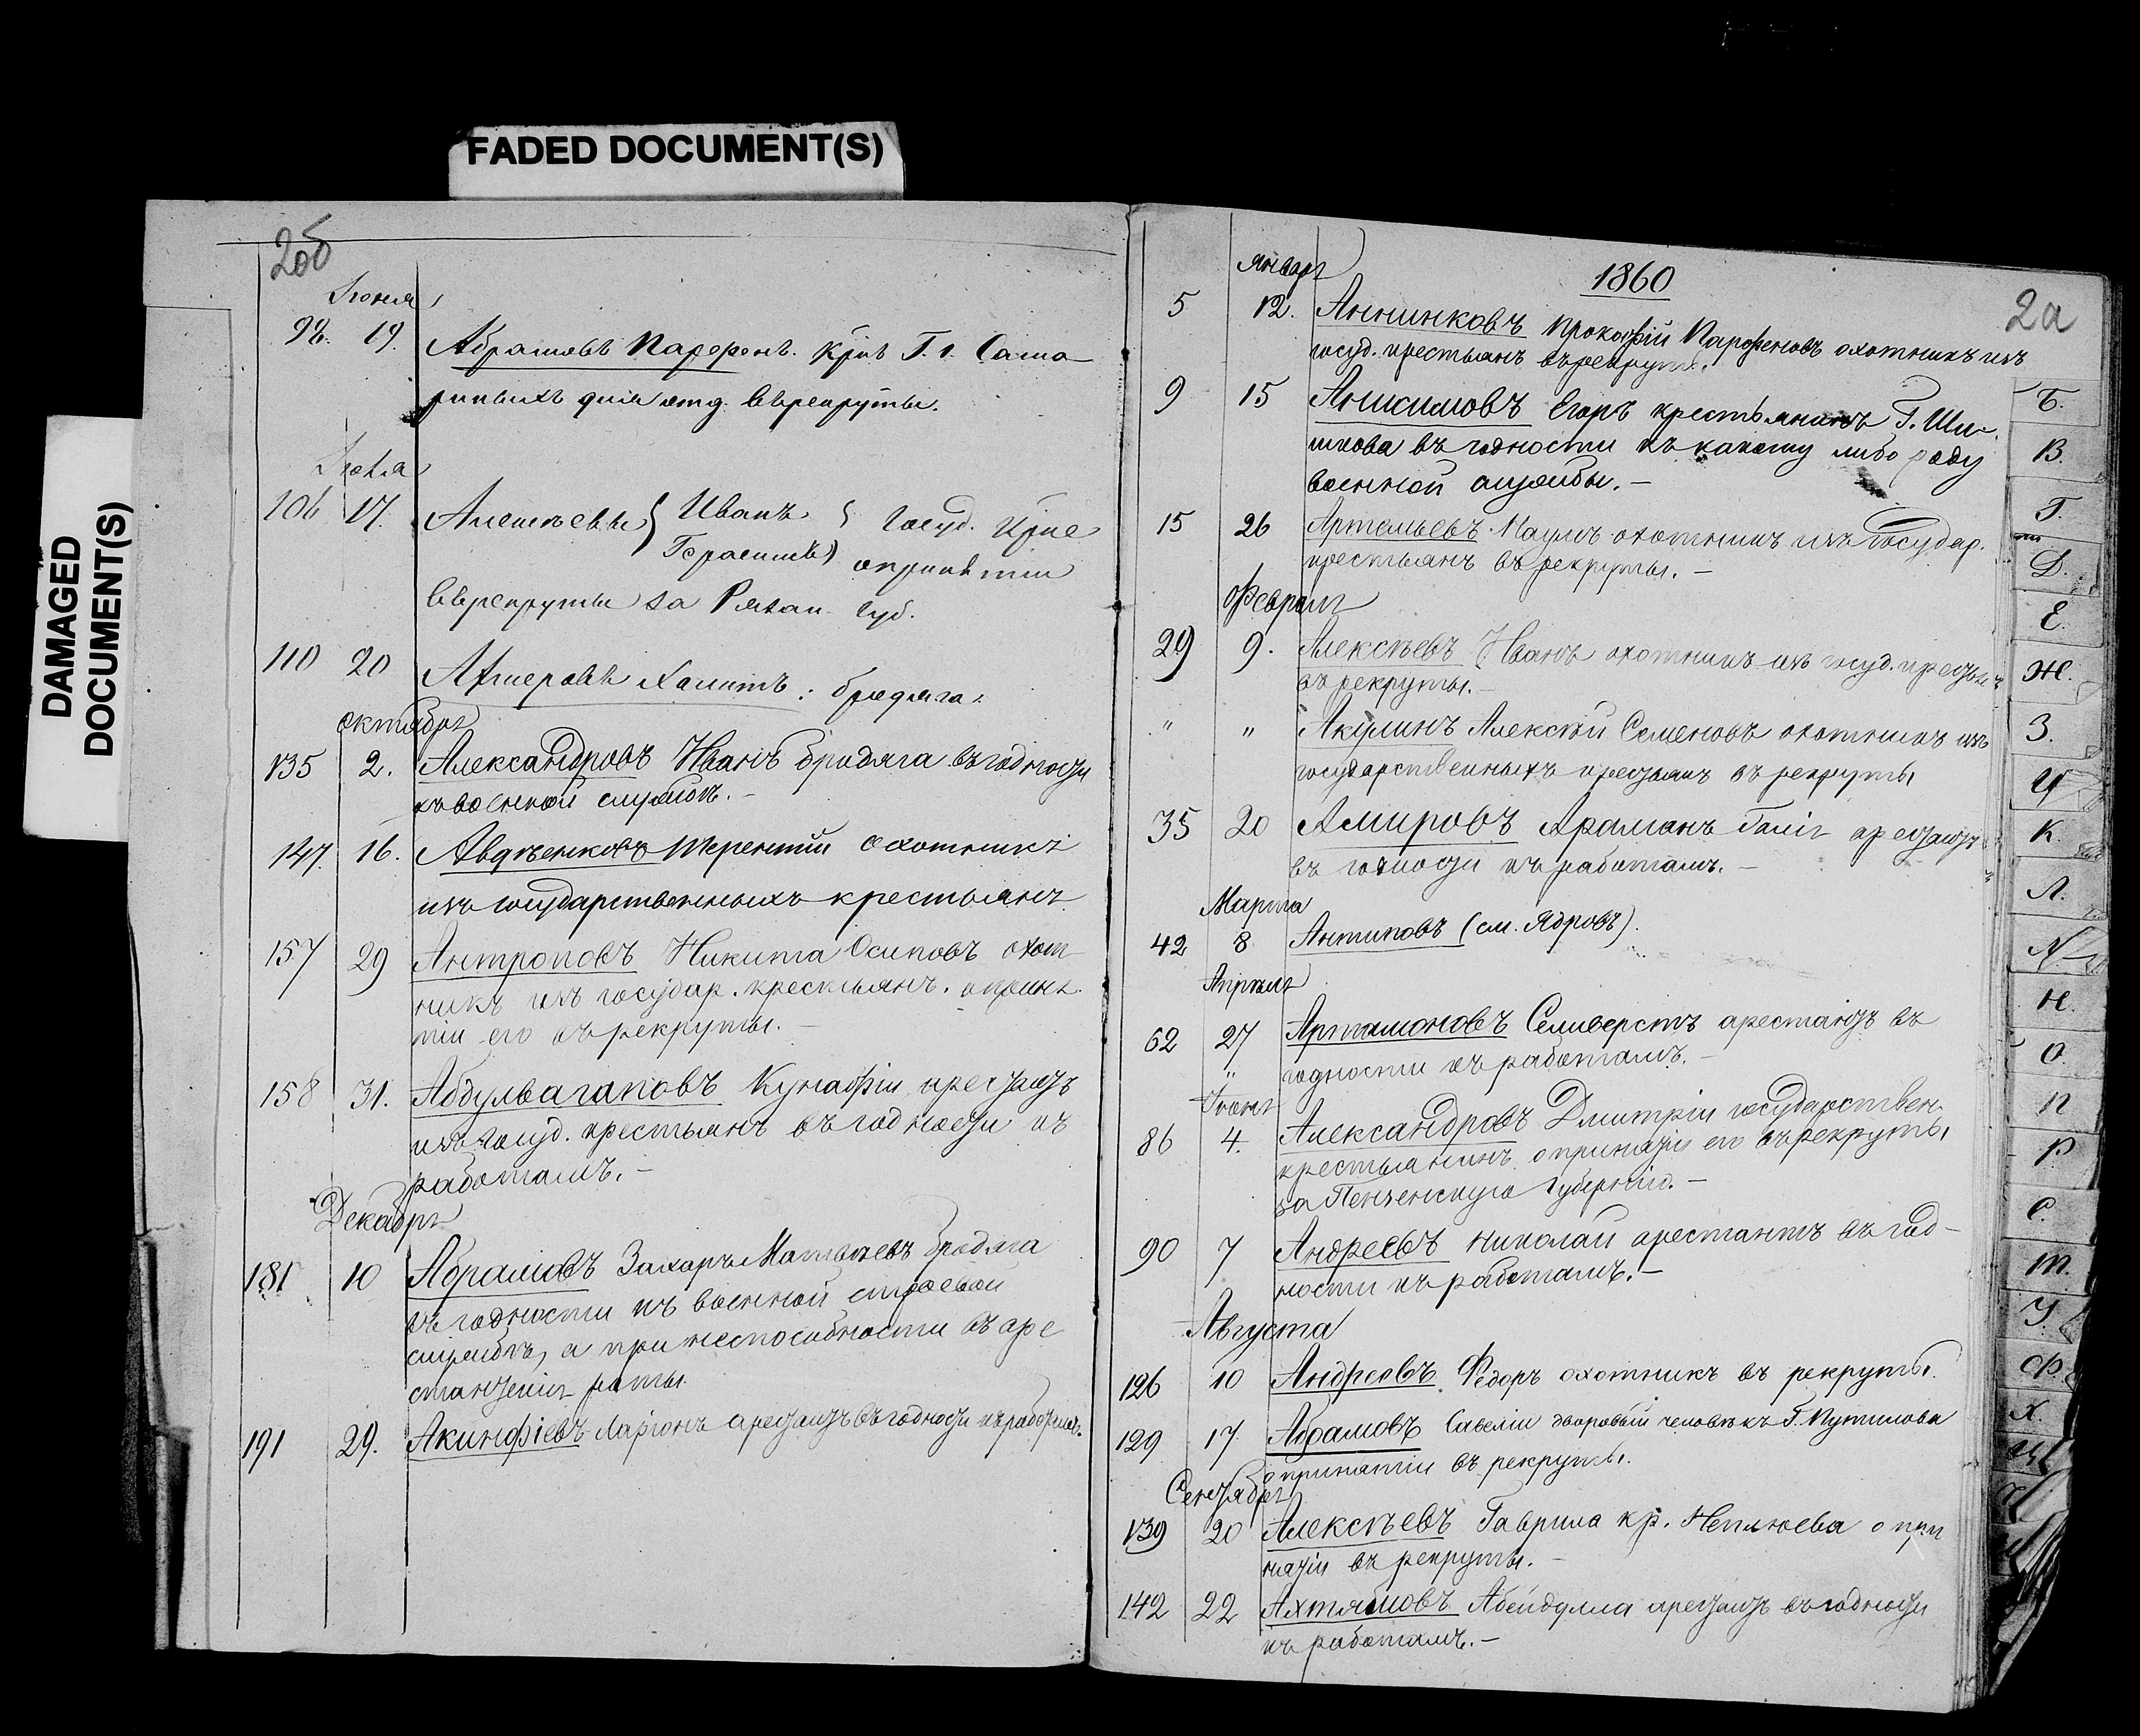 FADED DOCUMENT(S)
DAMAGED
DOCUMENT(S)
2об
Іюня
98. 19. Абрамовъ Парфенъ. Г. г. Сама
отд. въ рекруты.
Іюля
106 17. Алексѣевы { Иванъ } госуд. крес
Герасимъ о принятіи
въ рекруты за Рязан. губ.
110 20 Халитъ: бродяга.
Октября
135 2. Александровъ Иванъ бродяга въ годности
къ военной службѣ. —
147. 16. Авдѣенковъ Терентій охотникъ
изъ государственныхъ крестьянъ
157 29 Антроповъ Никита Осиповъ охот
никъ изъ государ. крестьянъ. о приня
тіи его въ рекруты. —
158 31. Абдулвагаповъ Кунафіи арестантъ
изъ госуд. крестьянъ въ годности къ
работамъ. —
Декабря
181 10 Абрамовъ Захаръ Матвѣевъ бродяга
въ годности къ военной строевой
службѣ, а при неспособности въ аре
стантскія роты
191 29. Акинфіевъ Ларіонъ арестантъ въ годности къ работамъ.
2а
1860
Январь
5 12. Аннинковъ Прокофій Парфеновъ охотникъ изъ
госуд. крестьянъ въ рекруты.
9 15 Анисимовъ Егоръ крестьянинъ Г. Ши-
шкова въ годности къ какому либо роду
военной службы. —
15 26 Артемьевъ Паулъ охотникъ изъ государ.
крестьянъ въ рекруты. —
Февраля
29 9. Алексѣевъ Иванъ охотникъ изъ госуд. крестьянъ
въ рекруты. —
" " Акулинъ Алексѣй Семеновъ охотникъ изъ
государственныхъ крестьянъ въ рекруты
35 20 Амировъ арестантъ
въ годности къ работамъ. —
Марта
42 8 Антиповъ (см. Ядровъ).
Апрѣля
62 27 Артамоновъ Селиверстъ арестантъ въ
" годности къ работамъ. —
Іюня
86 4. Александровъ Дмитріи государствен.
крестьянинъ о принятіи его въ рекруты
за Пензенскую Губернію. —
90 7 Андреевъ Николай арестантъ въ год-
ности къ работамъ. —
Августа
126 10 Андреевъ Федоръ охотникъ въ рекруты.
129 17 Абрамовъ Савелій дворовый человѣкъ Г. Путилова
о принятіи въ рекруты.
Сентября
139 20 Алексѣевъ Гаврила кр. Неплюева о при
нятіи въ рекруты. —
142 22 Ахтямовъ Абейдулла арестантъ въ годности
къ работамъ. —
Б.
В.
Г.
Д.
Е.
Ж.
З.
И
К.
Л.
М.
Н.
О.
П
Р
С.
Т.
У.
Ф.
Х.
Ц